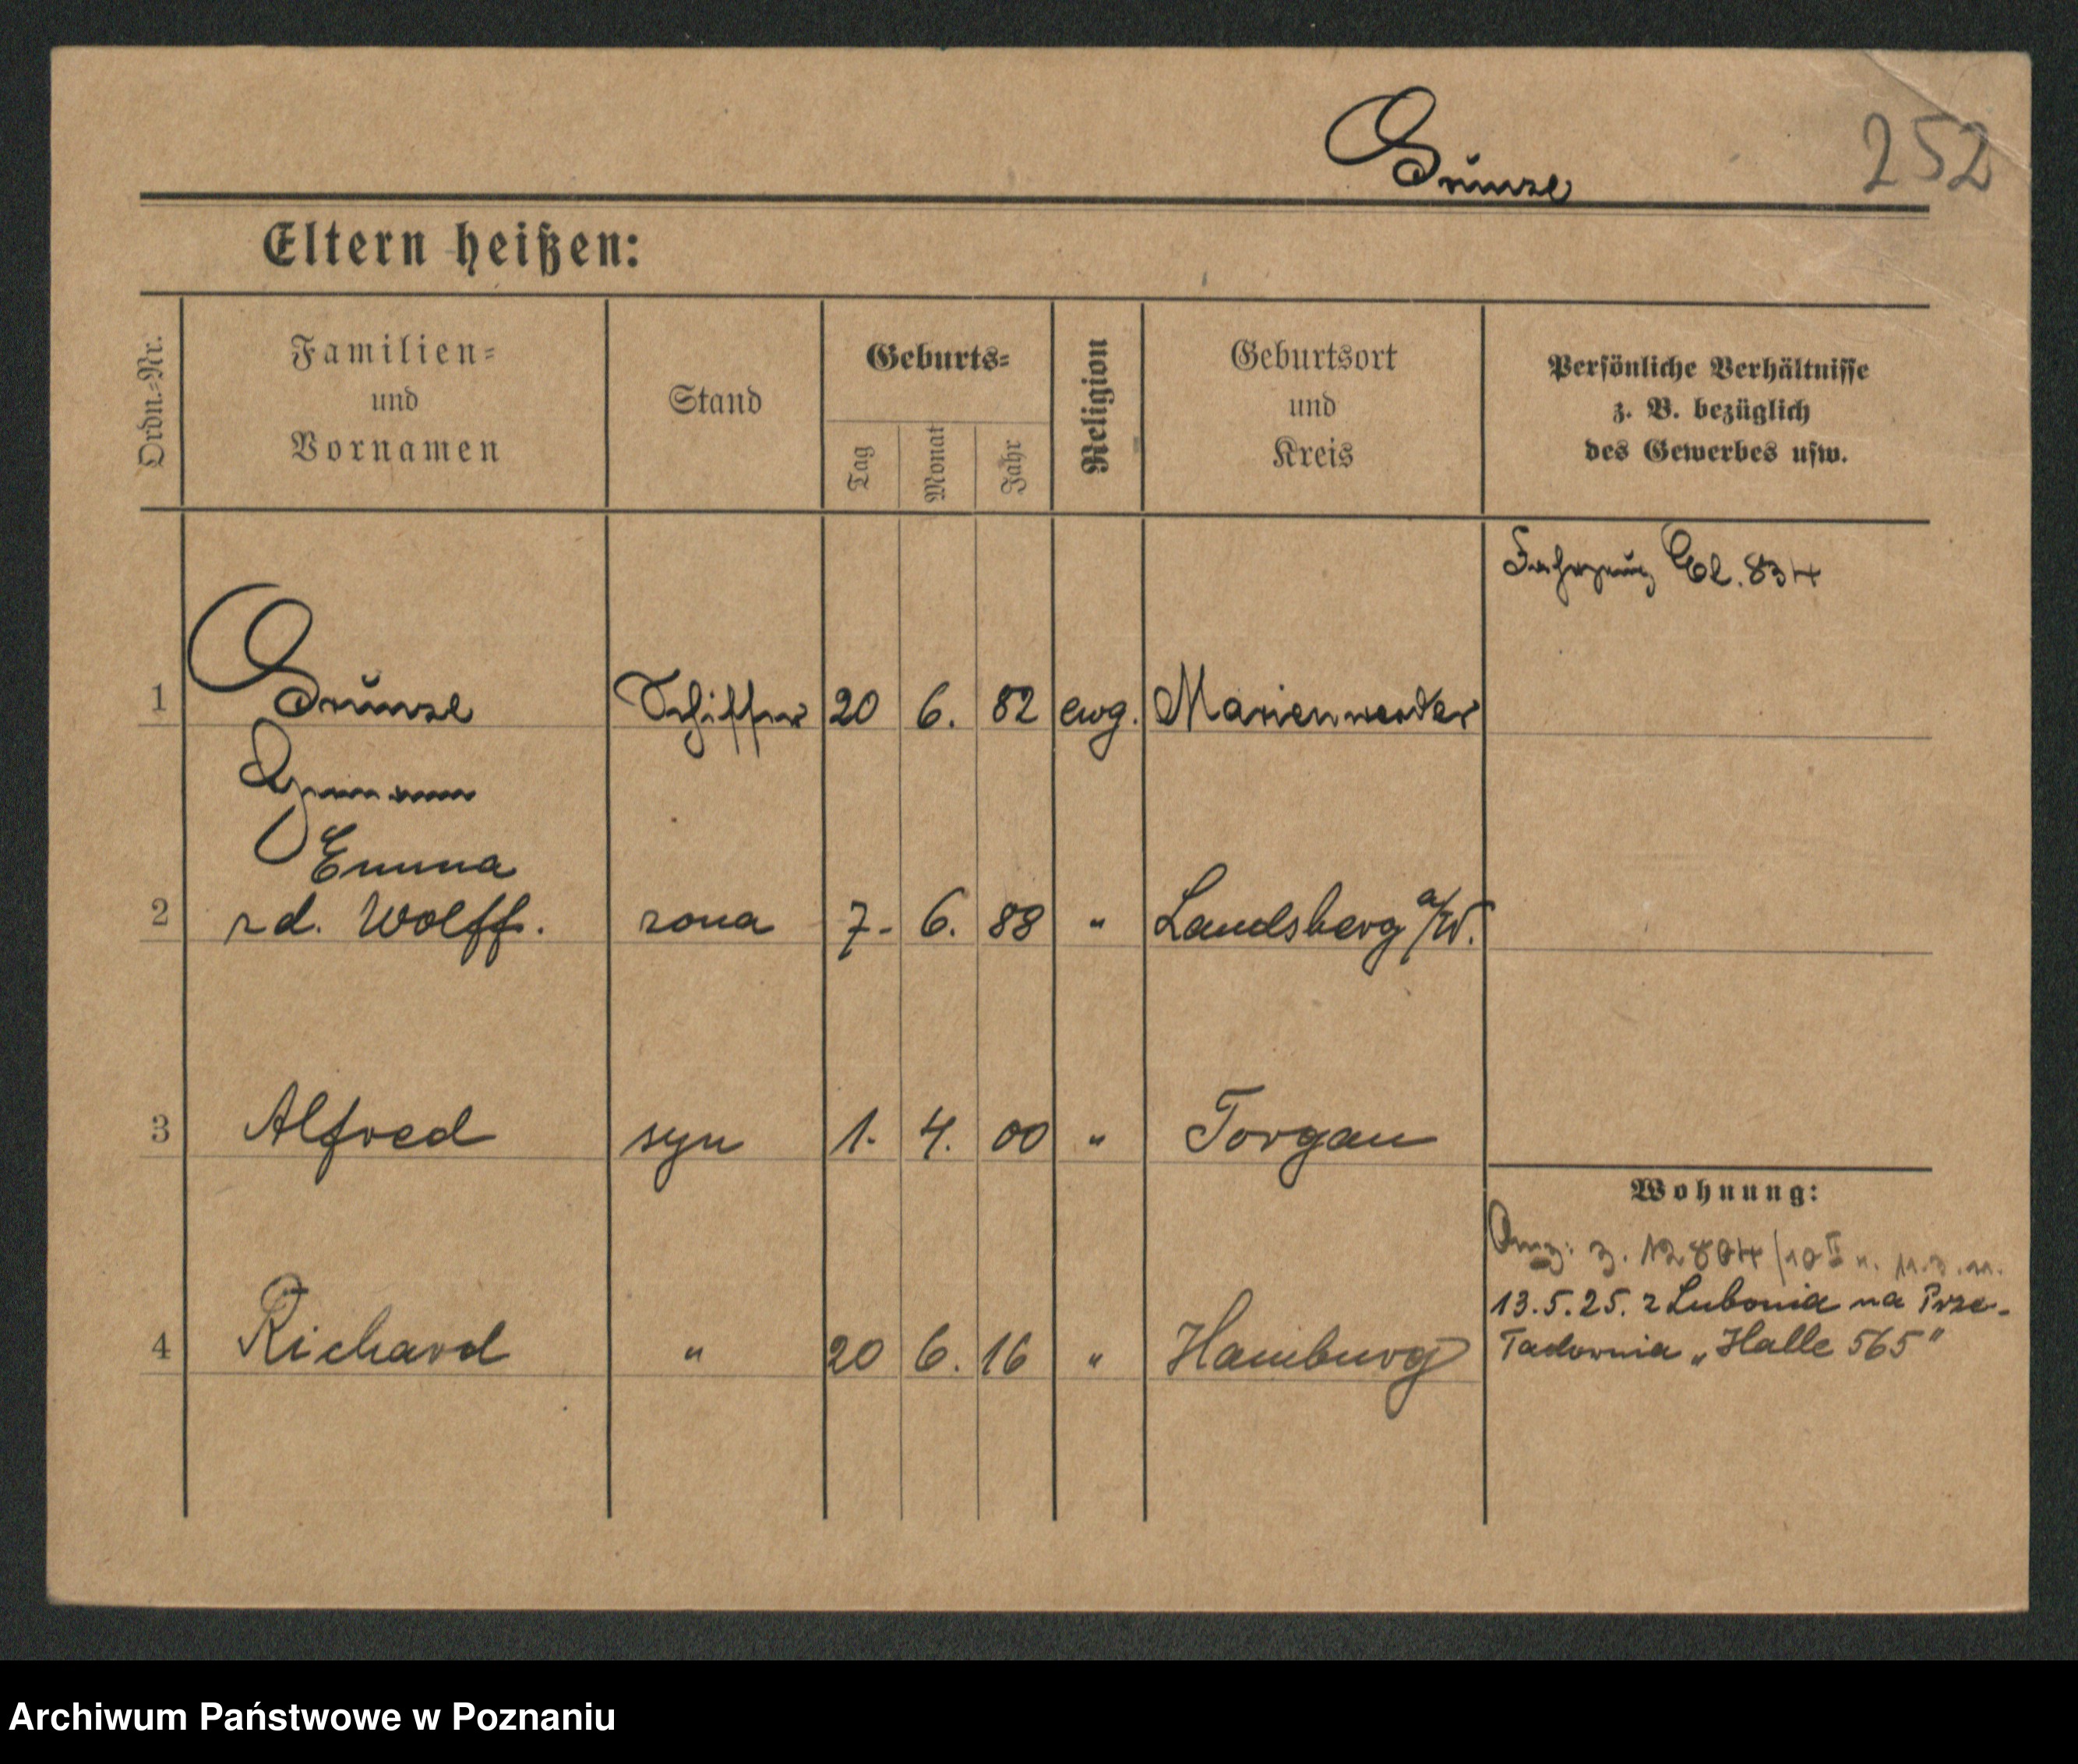 Grunze 252
Eltern heißen:
Ordn.-Nr.
Familien-
und
Vornamen
Stand
Geburts-
Tag
Monat
Jahr
Religion
Geburtsort
und
Kreis
Persönliche Verhältnisse
z. B. bezüglich
des Gewerbes usw.
Fahrzeug El. 834
1 Grunze Schiffer 20 6. 82 ewg. Marienwerder
Hermann
Emma
2 z d. Wolff. zona 7. 6. 88 " Landsberg a/W.
3 Alfred syn 1. 4. 00 " Torgau
Wohnung:
z. 12804/10
13.5.25. z Lubonia na Prze-
ładownia „Halle 565"
4 Richard " 20 6. 16 " Hamburg
Archiwum Państwowe w Poznaniu